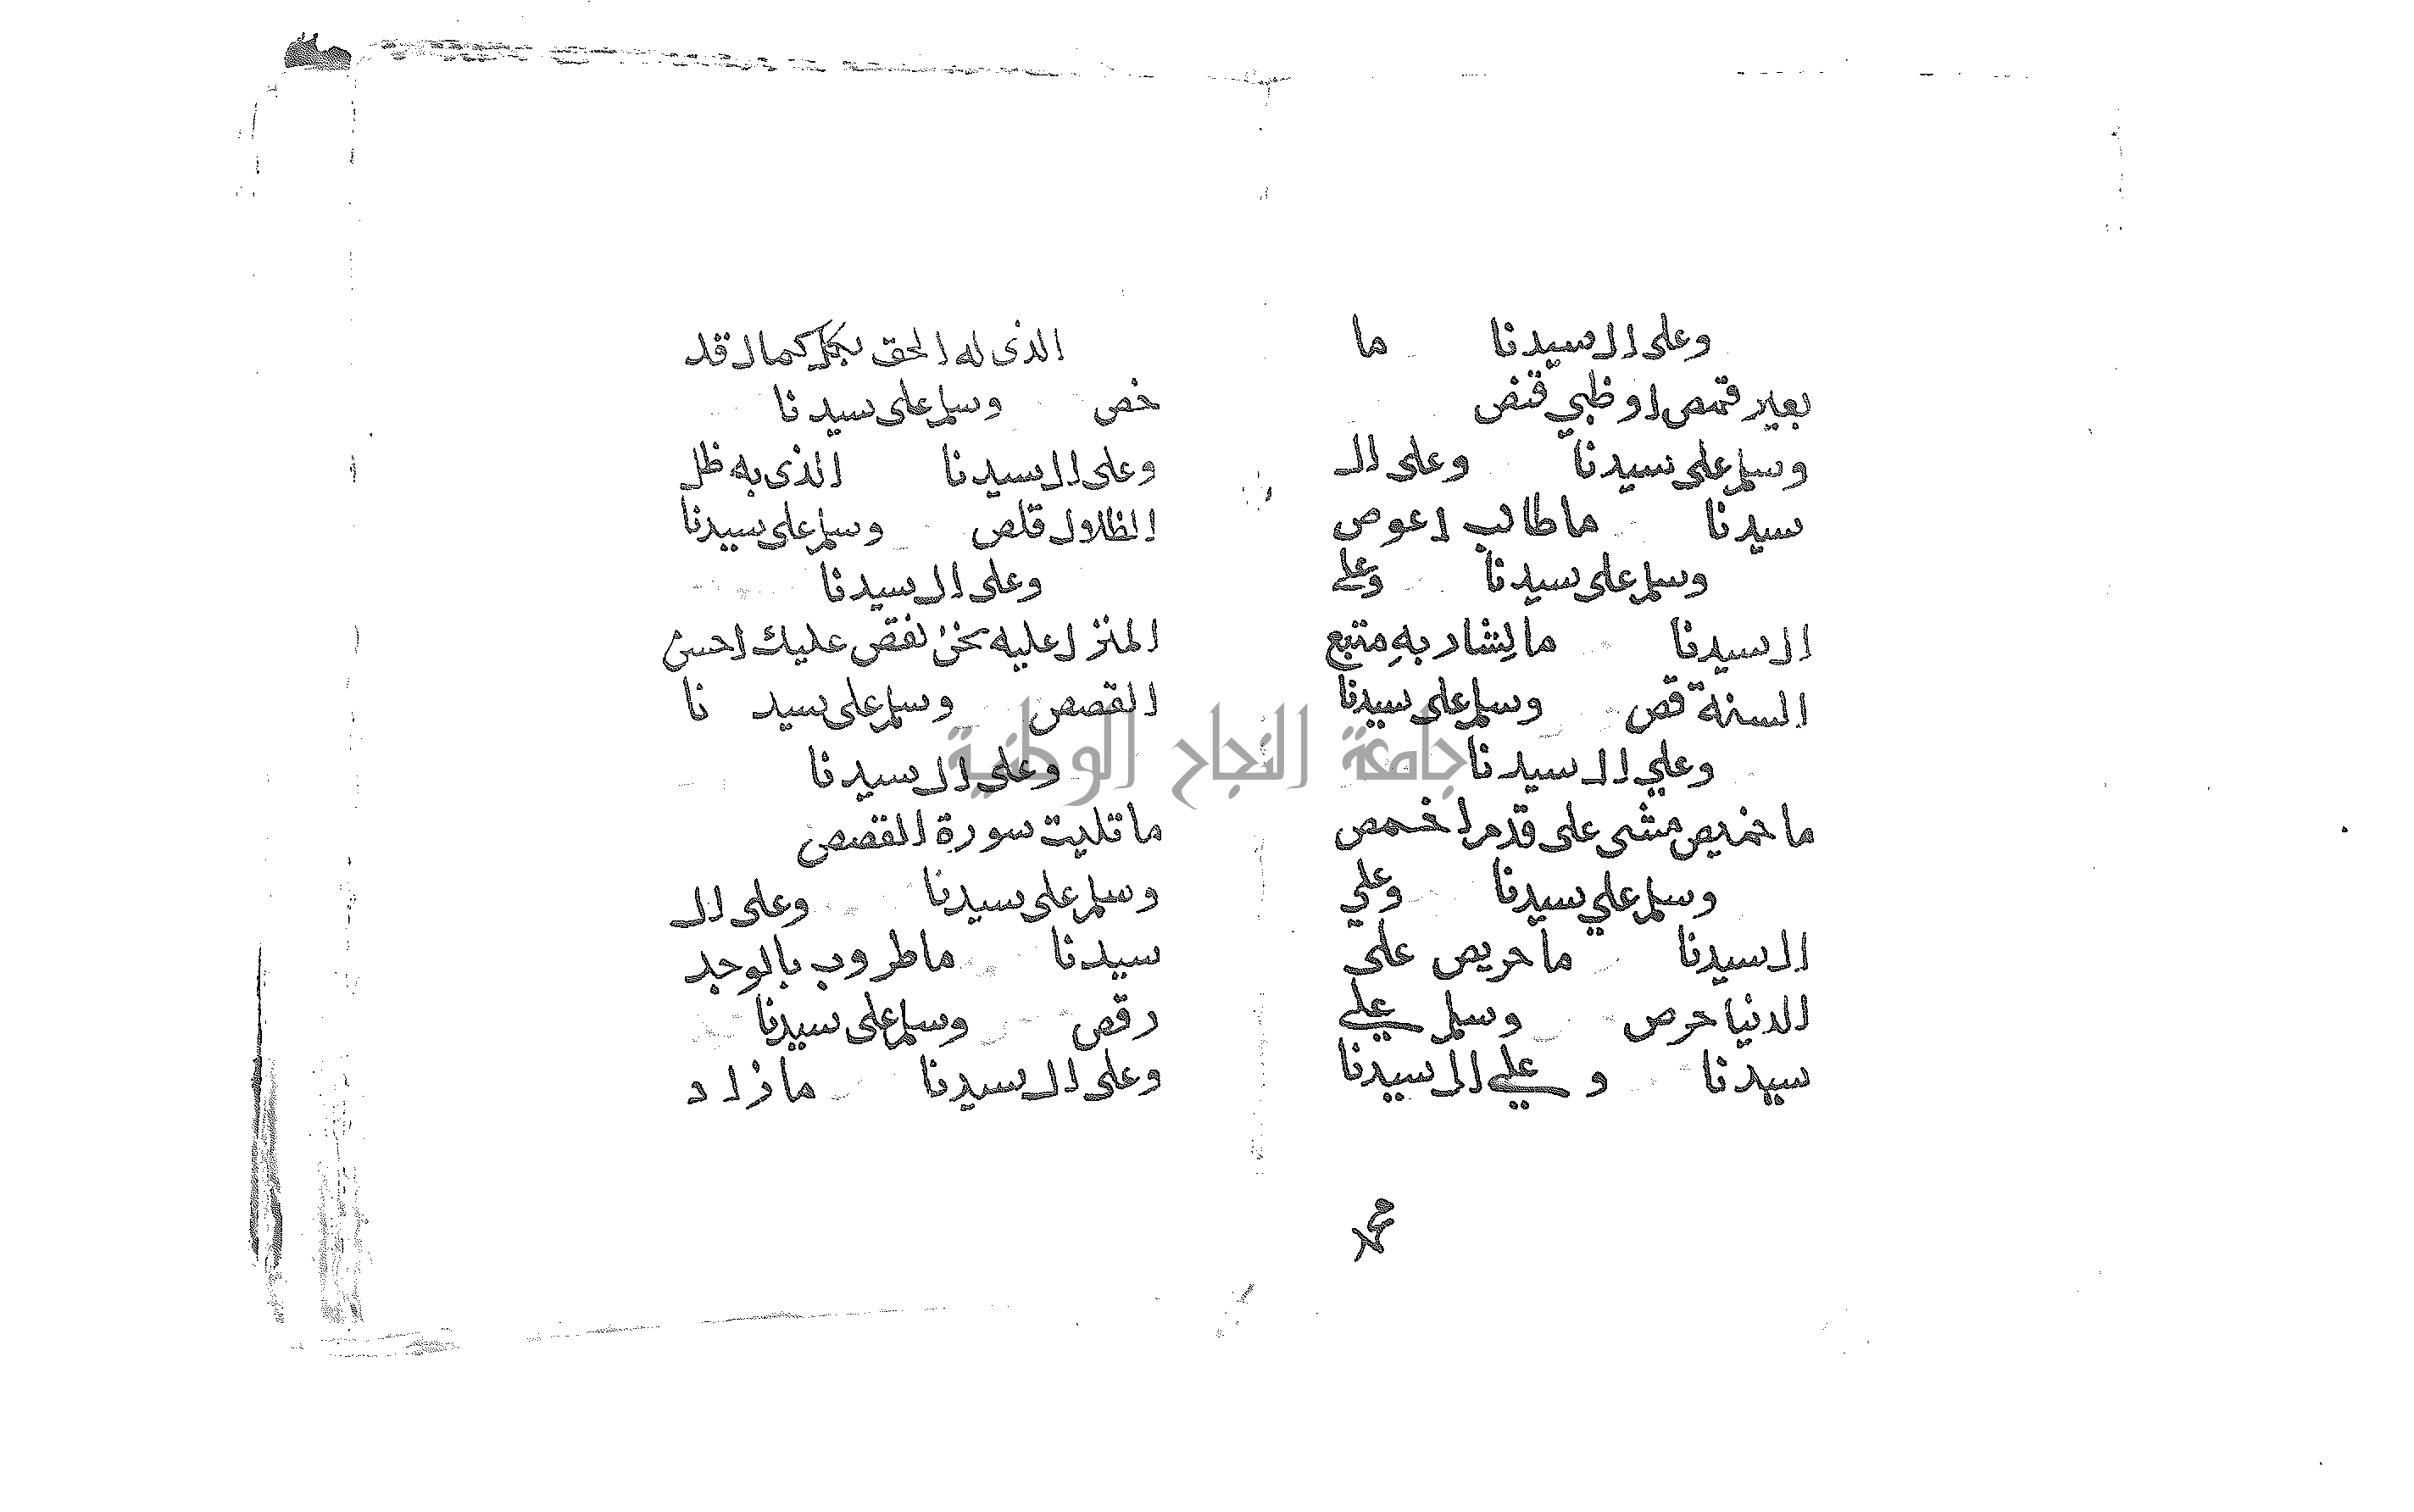 وعلى ال سيدنا ما
بعير قمص او ظبي قنص
وسلم على سيدنا وعلى ال
سيدنا ما طالب اعوص
وسلم على سيدنا وعلى
ال سيدنا ما لشارِبهِ متبع
السنة قص وسلم على سيدنا
وعلي ال سيدنا
ما خميص مشى على قدم اخمص
وسلم علي سيدنا وعلي
ال سيدنا ما حريص على
الدنيا حرص وسلم علي
سيدنا و علي ال سيدنا
محمد
الذى له الحق بكل كمال قد
خص وسلم على سيدنا
وعلى ال سيدنا الذى به ظل
الظلال قلص وسلم على سيدنا
وعلى ال سيدنا
المنزل عليه نحن نقص عليك احسن
القصص وسلم على سيد نا
وعلى ال سيدنا
ما تليت سورة القصص
وسلم على سيدنا وعلى ال
سيدنا ما طروب بالوجد
رقص وسلم على سيدنا
وعلى ال سيدنا ما زاد
جامعة النجاح الوطنية